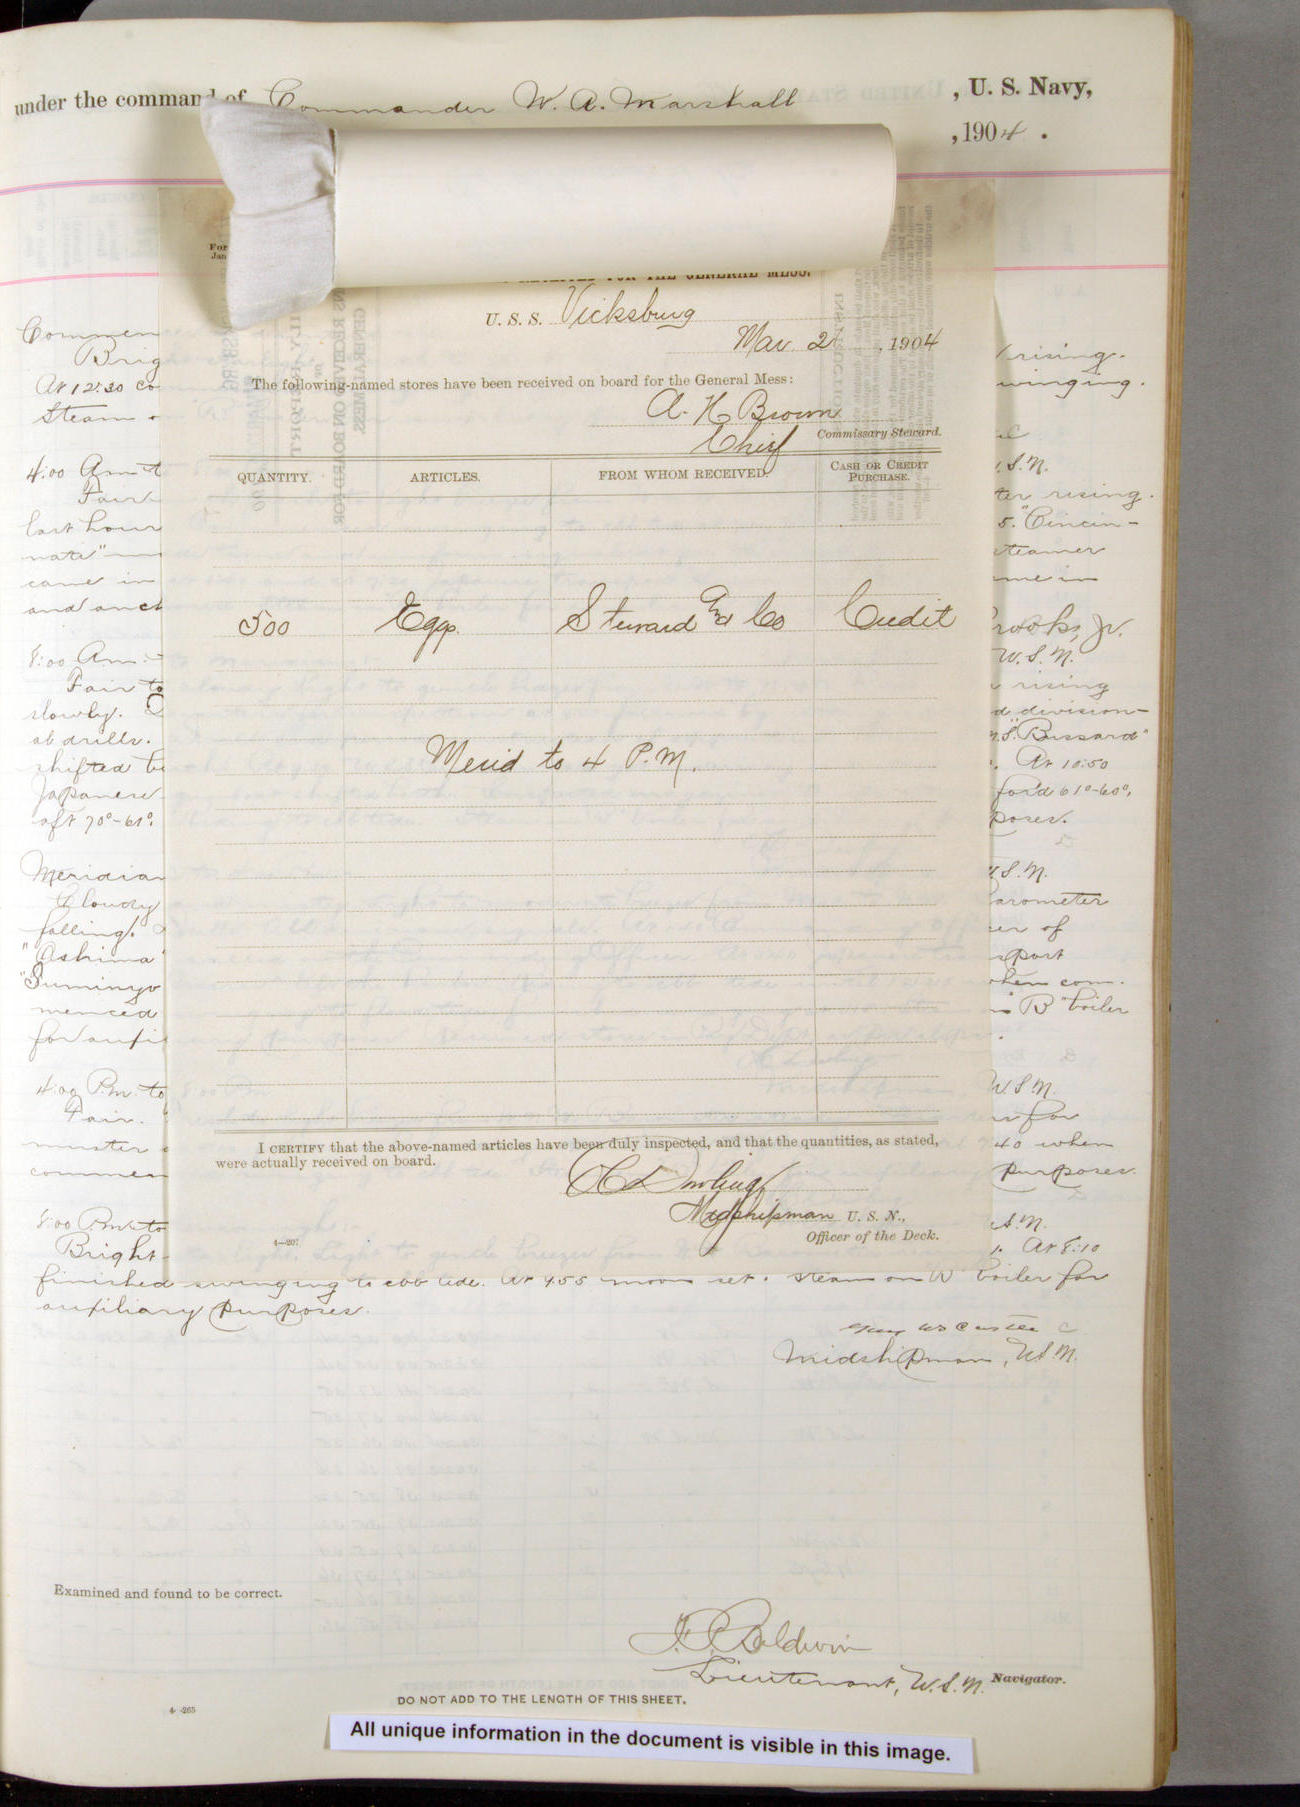 under the command of Commander W. A. Marshall, U. S. Navy,
, 1904.
For
Jan
FOR THE GENERAL MESS.
U. S. S. Vicksburg
Mar 2, 1904
The following-named stores have been received on board for the General Mess:
A. H. Brown
Chief Commissary Steward.
QUANTITY. ARTICLES. FROM WHOM RECEIVED. CASH OR CREDIT PURCHASE.
500 Eggs. Steward & Co Credit
Merid to 4 P.M.
I CERTIFY that the above-named articles have been duly inspected, and that the quantities, as stated,
were actually received on board.
Midshipman U. S. N.,
Officer of the Deck.
4—207
Commen
Brig rising.
At 12:30 co winging.
Steam
U.S.N.
4:00 Am t
Fair ter rising.
last hour S. "Cincin-
nati" steamer
came in me in
and anch
rooks, Jr.
8:00 Am: U.S.N.
Fair to rising
slowly. d division-
al drills. S. "Bussard"
shifted be At 10:50
Japanese ford 61°-60°,
aft 70°-61°. poses.
U.S.N.
Meridian
Cloudy barometer
falling. er of
"Ashima" sport
"Suminoye when com-
menced B boiler
for auxi
4:00 P.m. to U.S.N.
Fair. for
muster 40 when
commen purposes.
8:00 P.m. to U.S.N.
Bright At 8:10
finished swinging to ebb tide. At 9.55 moon set. Steam on B boiler for
auxiliary purposes.
Midshipman, U.S.N.
Examined and found to be correct.
F. P. Baldwin
Lieutenant, U.S.N. Navigator.
DO NOT ADD TO THE LENGTH OF THIS SHEET.
4—265
All unique information in the document is visible in this image.